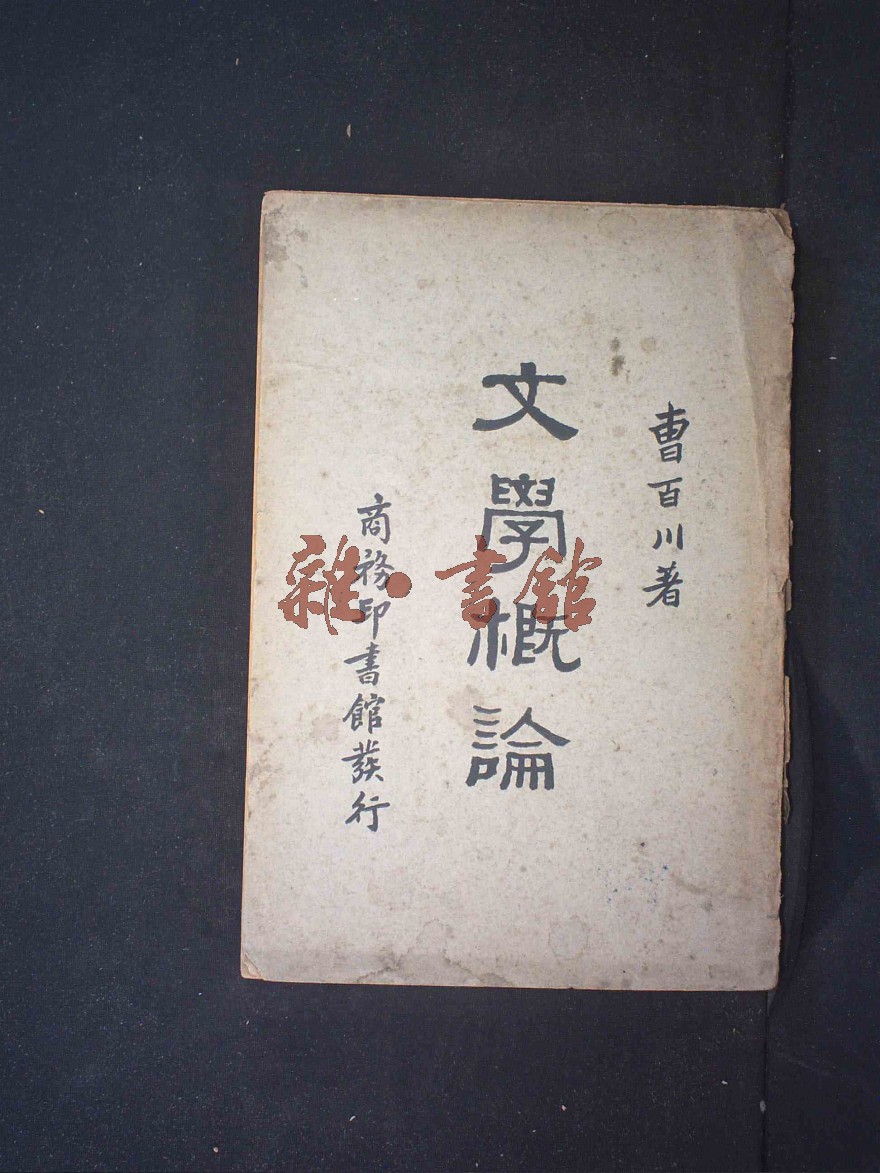 曹百川著
文學概論
商務印書館發行
雜·書館